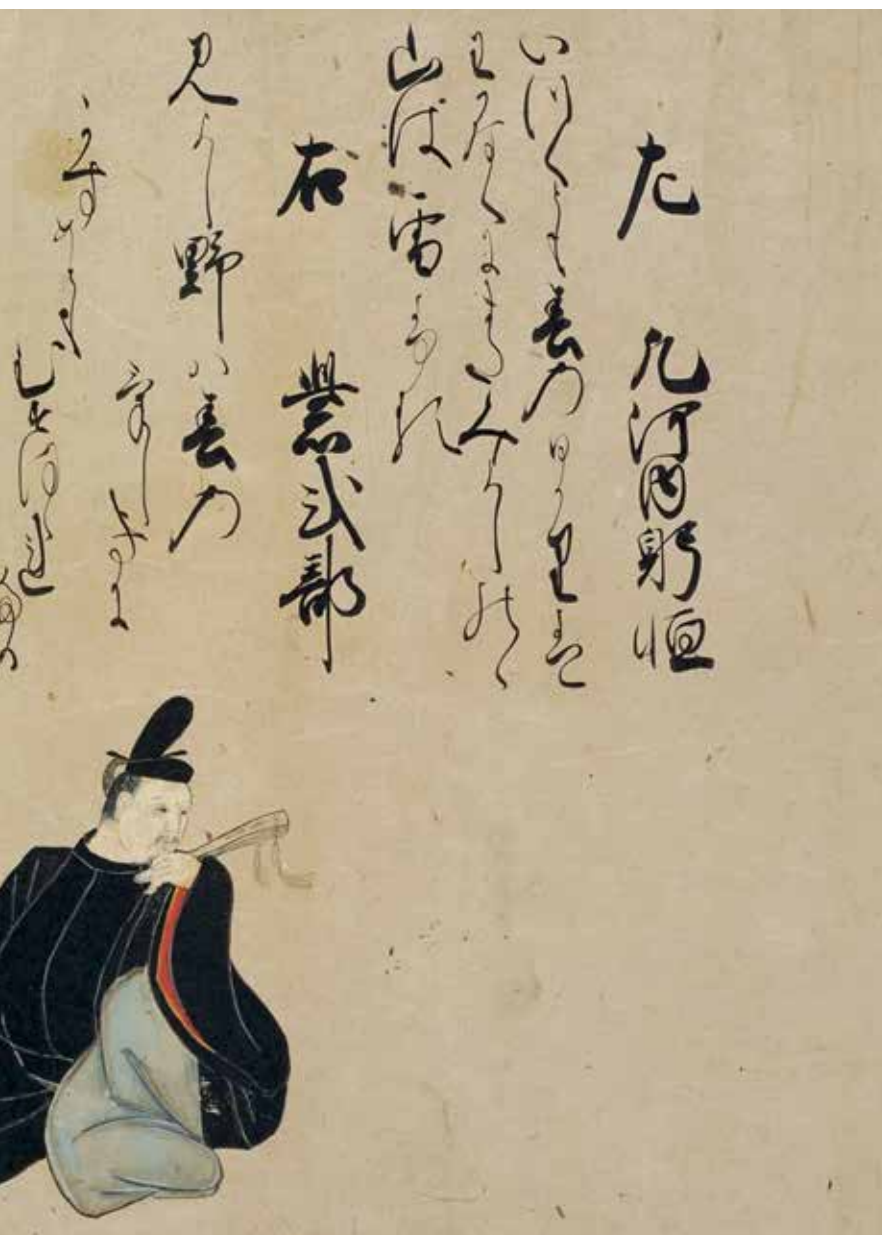 左　凡河内躬恒
いつくとも春乃日かりは
わかなくにまたみよしのゝ
山は雪ふる
右　紫式部
見よし野ハ春乃
けしきに
かすめとも
むすほれ